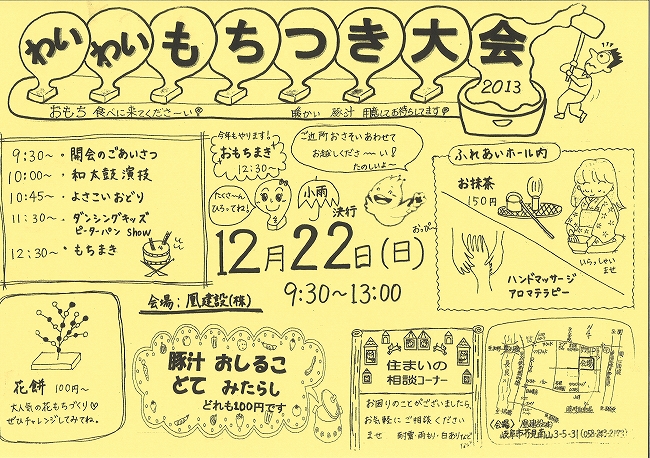 わいわいもちつき大会
2013
おもち 食べに来てくださーい
暖かい 豚汁 用意してお待ちしてます
9:30～・開会のごあいさつ
10:00～・和太鼓演技
10:45～・よさこいおどり
11:30～・ダンシングキッズ
ピーターパン Show
12:30～・もちまき
今年もやります!
おもちまき
12:30～
ご近所おさそいあわせて
お越しくださ～い!
たのしいよ～
たくさ～ん
ひろってね!
小雨
決行
12月22日(日)
9:30～13:00
会場:凰建設(株)
ふれあいホール内
お抹茶
150円
いらっしゃい
ませ
ハンドマッサージ
アロマテラピー
花餅 100円～
大人気の花もちづくり♡
ぜひチャレンジしてみてね。
豚汁 おしるこ
どて みたらし
どれも100円です
住まいの
相談コーナー
お困りのことがございましたら
お気軽にご相談ください
ませ 耐震・雨もり・白ありなど
会場
〈会場〉凰建設(株)
岐阜市芥見南山3-5-31(058-243-2173)